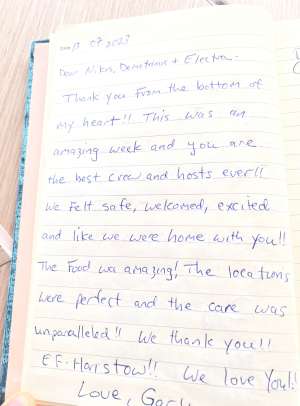 07 2023
Dear Nikos, Demetrious + Electra -
Thank you From the bottom of
my heart!! This was an
amazing week and you are
the best crew and hosts ever!!
We Felt safe, welcomed, excited
and like we were home with you!!
The Food wa amazing! The locations
were perfect and the care was
unparalleled!! We thank you!!
EF. !! We love You!!
Love,